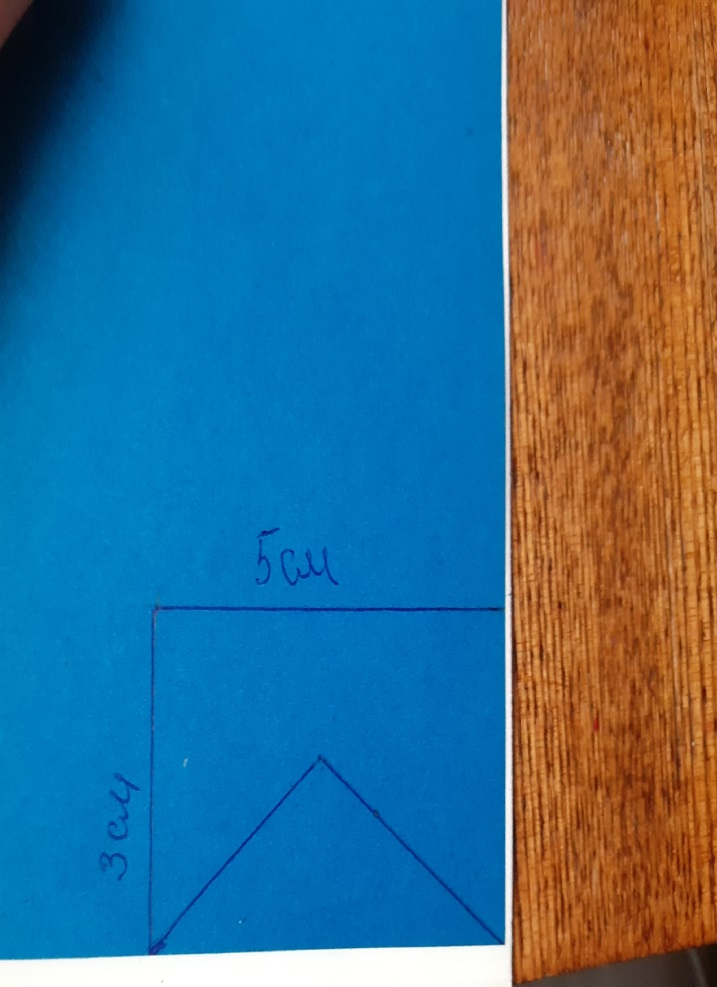 5см
3см